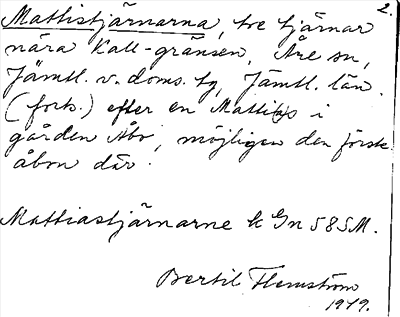 2.
Mattistjärnarna, tre tjärnar
nära Kall-gränsen, Åre sn,
Jämtl. v. doms. tg, Jämtl. län.
(forts.) efter en Mattias i
gården Åbo, möjligen den första
åbon där.
Mattiastjärnarne k Gn 58SM.
Bertil Flemström
1979.